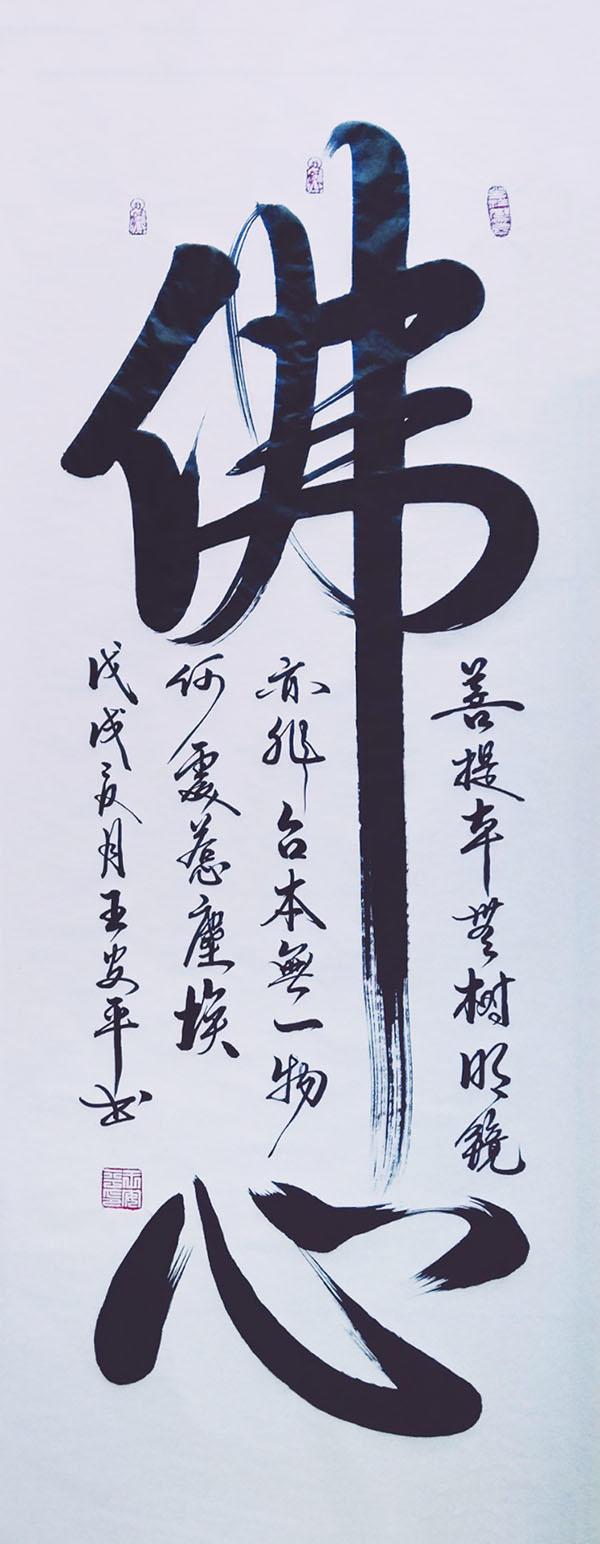 佛心
菩提本無树明鏡
亦非台本無一物
何處惹塵埃
戊戌亥月王安平书